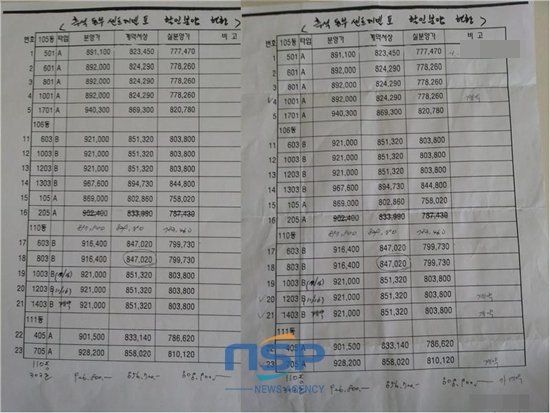 번호 105동 타입 분양가 계약서상 실분양가 비 고
1 501 A 891,100 823,450 777,470
2 601 A 892,000 824,290 778,260
3 801 A 892,000 824,290 778,260
4 1001 A 892,000 824,290 778,260
5 1701 A 940,300 869,300 820,780
106동
11 603 B 921,000 851,320 803,800
12 1003 B 921,000 851,320 803,800
13 1203 B 921,000 851,320 803,800
14 1303 B 967,600 894,730 844,800
15 105 A 869,000 802,860 758,020
16 205 A 902,400 833,990 787,430
110동
17 603 B 916,400 847,020 799,730
18 803 B 916,400 847,020 799,730
19 1003 B 921,000 851,320 803,800
20 1203 B 921,000 851,320 803,800
21 1403 B 921,000 851,320 803,800
111동
22 405 A 901,500 833,140 786,620
23 705 A 928,200 858,020 810,120
번호 105동 타입 분양가 계약서상 실분양가 비 고
1 501 A 891,100 823,450 777,470
2 601 A 892,000 824,290 778,260
3 801 A 892,000 824,290 778,260
4 1001 A 892,000 824,290 778,260 계약
5 1701 A 940,300 869,300 820,780
106동
11 603 B 921,000 851,320 803,800
12 1003 B 921,000 851,320 803,800
13 1203 B 921,000 851,320 803,800
14 1303 B 967,600 894,730 844,800
15 105 A 869,000 802,860 758,020
16 205 A 902,400 833,990 787,430
110동
17 603 B 916,400 847,020 799,730
18 803 B 916,400 847,020 799,730
19 1003 B 921,000 851,320 803,800
20 1203 B 921,000 851,320 803,800 계약
21 1403 B 921,000 851,320 803,800 계약
111동
22 405 A 901,500 833,140 786,620
23 705 A 928,200 858,020 810,120 계약
NSP
NEWS AGENCY